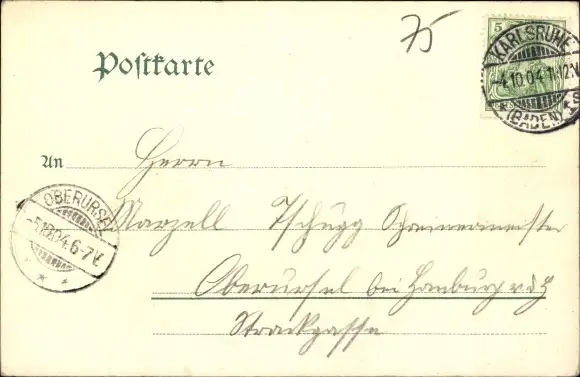 75
5
KARLSRUHE
-4.10.04.11-12V.
* (BADEN) * 
Postkarte
An Herrn
OBERURSEL
-5.10.04.6-7V.
Marzell Tschugg Schreinermeister
Oberursel bei Homburg v.d.H
Strackgasse